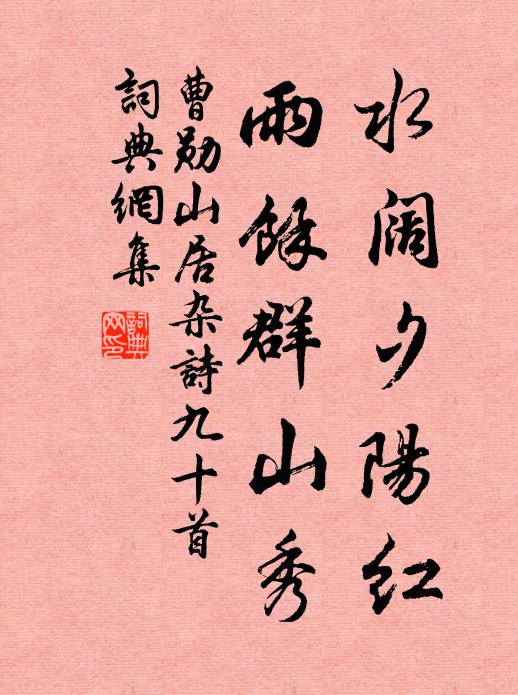 水阔夕陽红
雨餘群山秀
曹勋山居杂詩九十首
詞典網集
詞典網印